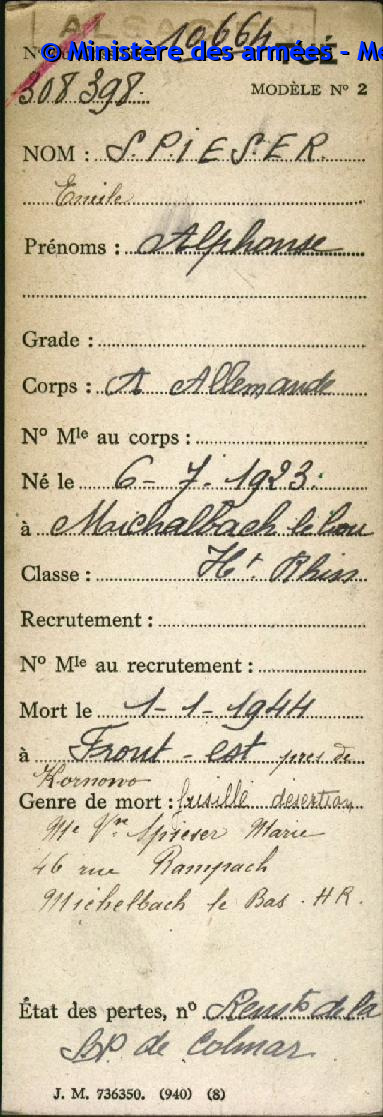 ALSACE
© Ministère des armées - Me
10664
308 398
MODÈLE Nº 2
NOM : SPIESER
Emile
Prénoms : Alphonse
Grade :
Corps : A Allemande
Nº Mle au corps :
Né le 6 - 7. 1923.
à Michalbach le bas
Classe : Ht Rhin
Recrutement :
Nº Mle au recrutement :
Mort le 1 - 1 - 1944
à Front - est pres de
Kornowo
Genre de mort : fusillé desertion
Me Vve Spieser Marie
46 rue Rampach
Michelbach le Bas . HR.
État des pertes, nº Rensts de la
BP de Colmar
J. M. 736350. (940) (8)